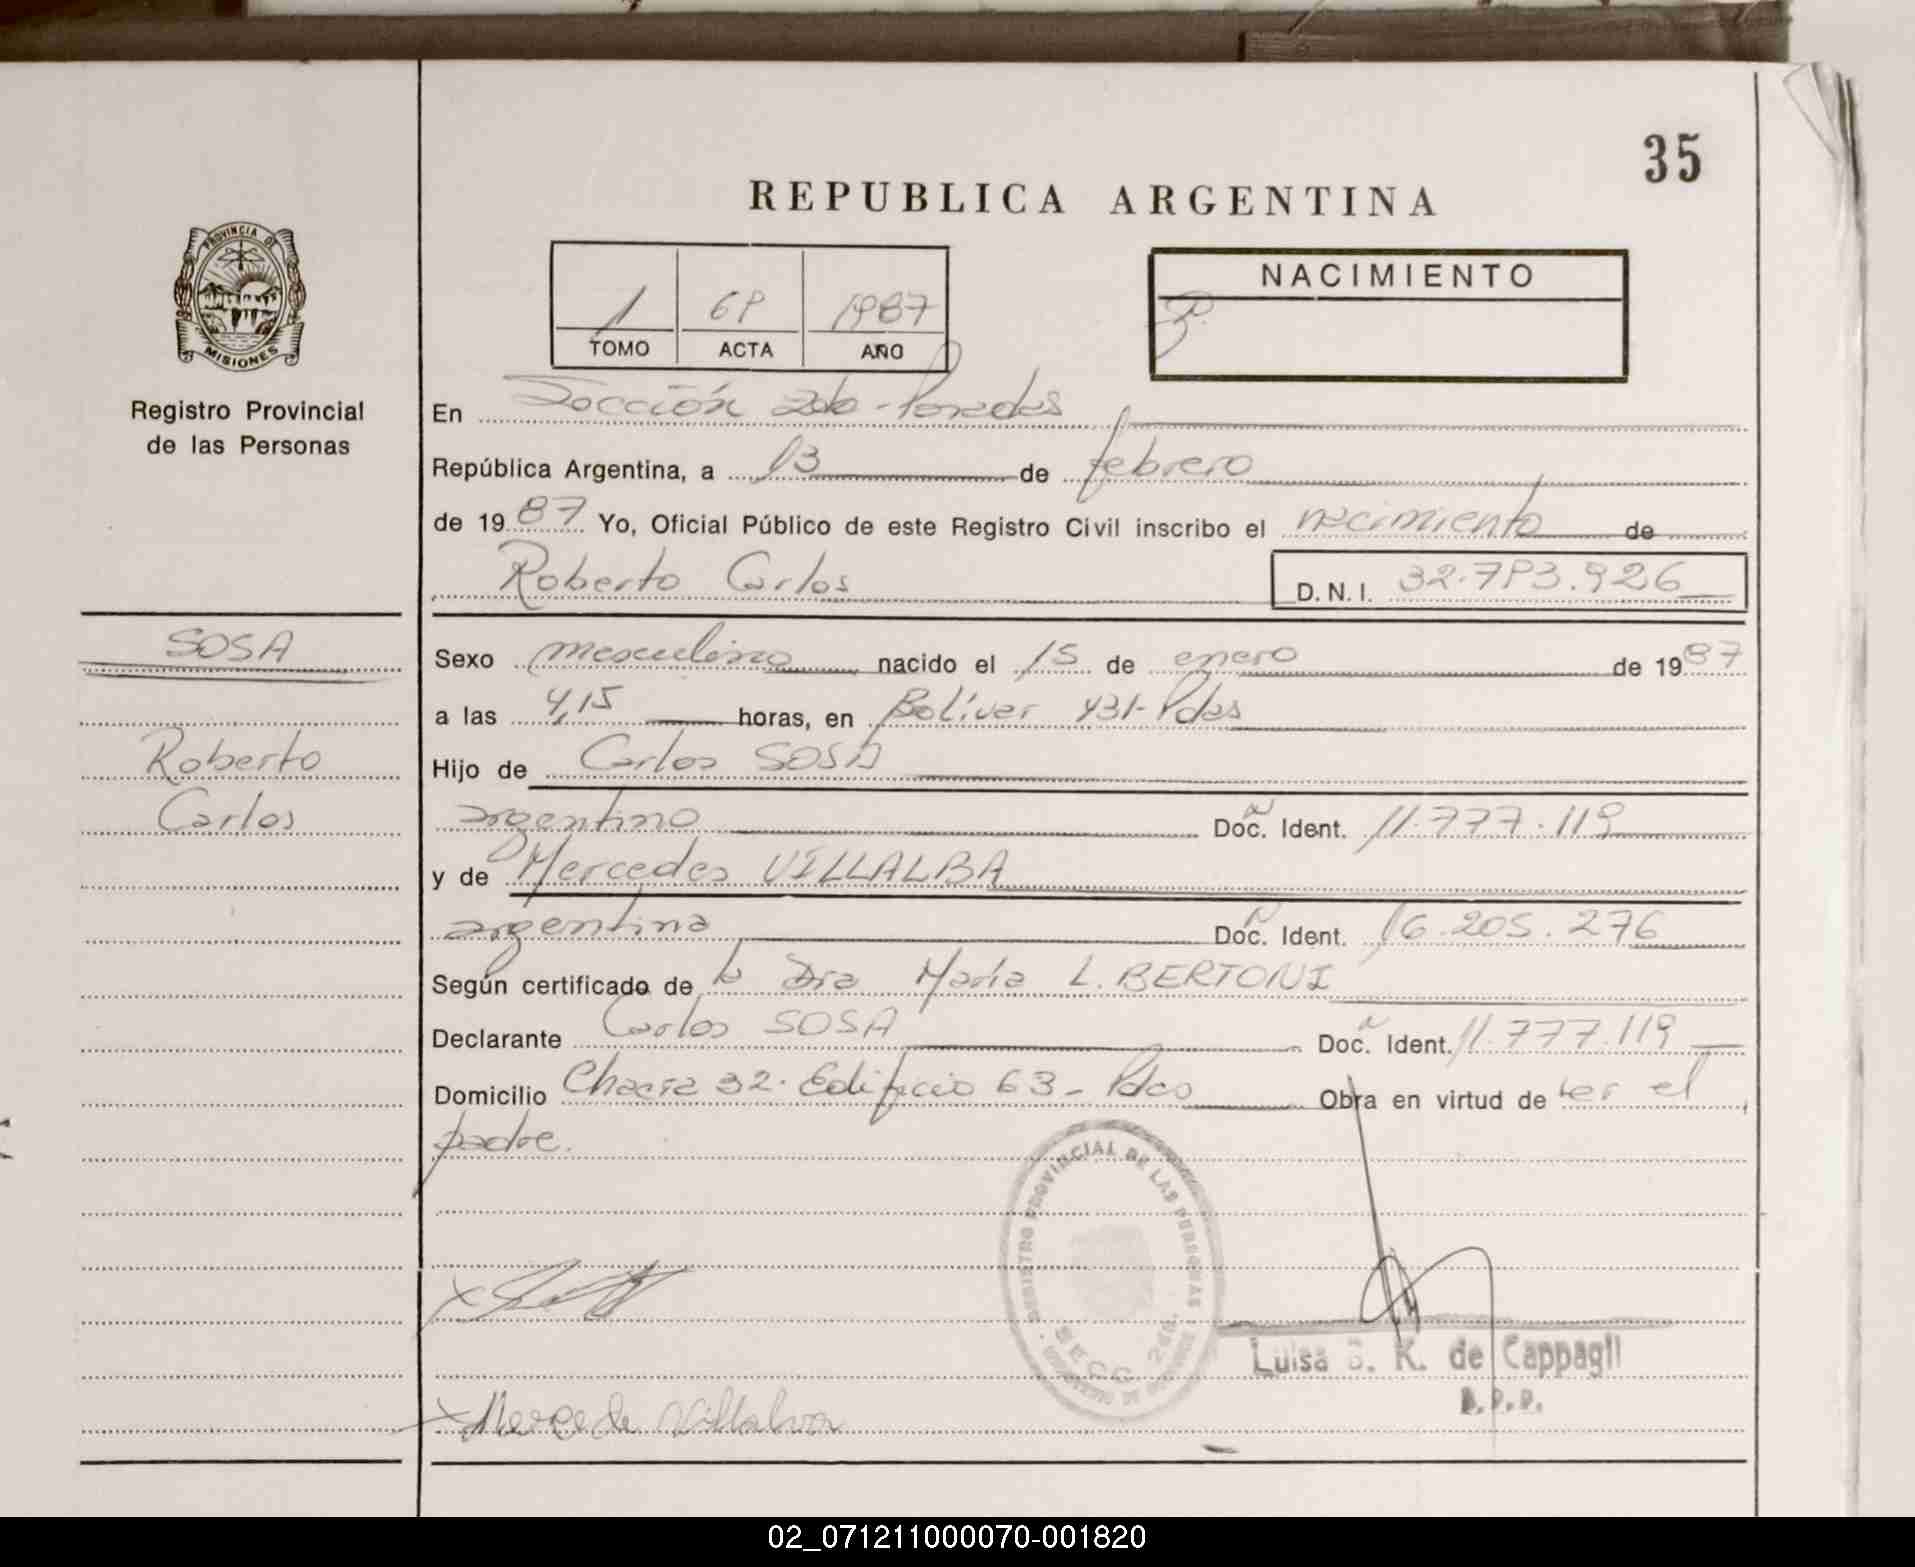 35
REPUBLICA ARGENTINA
PROVINCIA DE
MISIONES
Registro Provincial
de las Personas
1 69 1987
TOMO ACTA AÑO
NACIMIENTO
3º.
En Sección 2do - Posadas
República Argentina, a 13 de febrero
de 1987 Yo, Oficial Público de este Registro Civil inscribo el nacimiento de
Roberto Carlos D.N.I. 32.793.926
SOSA
Roberto
Carlos
Sexo masculino nacido el 15 de enero de 1987
a las 4,15 horas, en Bolívar 431-Pdas
Hijo de Carlos SOSA
argentino Doc. Ident. 11.777.119
y de Mercedes VILLALBA
argentina Doc. Ident. 16.205.276
Según certificado de la Dra María L. BERTONI
Declarante Carlos SOSA Doc. Ident. 11.777.119
Domicilio Chacra 32. Edificio 63 - Pdas Obra en virtud de ser el
padre.
REGISTRO PROVINCIAL DE LAS PERSONAS
SECC. 2da.
Luisa K. de Cappagli
x Mercede Villalva
02_071211000070-001820